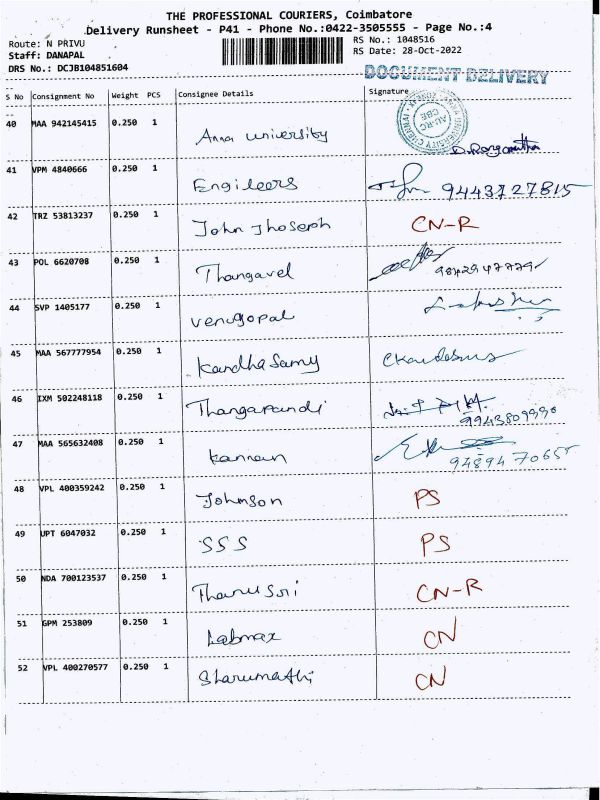 THE PROFESSIONAL COURIERS, Coimbatore
Delivery Runsheet - P41 - Phone No.:0422-3505555 - Page No.:4
Route: N PRIVU
RS No.: 1048516
Staff: DANAPAL
RS Date: 28-Oct-2022
DRS No.: DCJB104851604
DOCUMENT DELIVERY
S No Consignment No Weight PCS Consignee Details Signature
40 MAA 942145415 0.250 1 Anna University
41 VPM 4840666 0.250 1 Engileers 9443727815
42 TRZ 53813237 0.250 1 John Jhoseph CN-R
43 POL 6620708 0.250 1 Thangavel
44 SVP 1405177 0.250 1 Venugopal
45 MAA 567777954 0.250 1 Kandha Samy
46 IXM 502248118 0.250 1 Thangapandi 9943809990
47 MAA 565632408 0.250 1 Kannan 9489470655
48 VPL 400359242 0.250 1 Johnson PS
49 UPT 6047032 0.250 1 SSS PS
50 NDA 700123537 0.250 1 Thanu Sri CN-R
51 GPM 253809 0.250 1 Labmax CN
52 VPL 400270577 0.250 1 Sharumathi CN